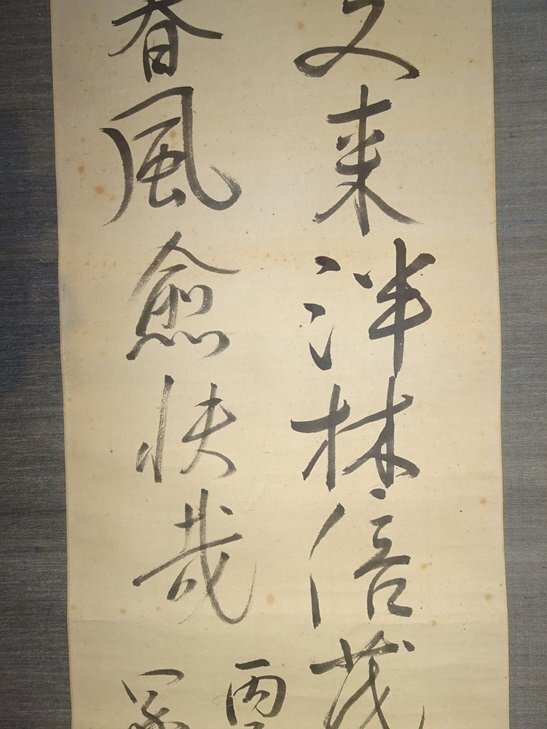 又来泮林倍茂
春風愈快哉
丙